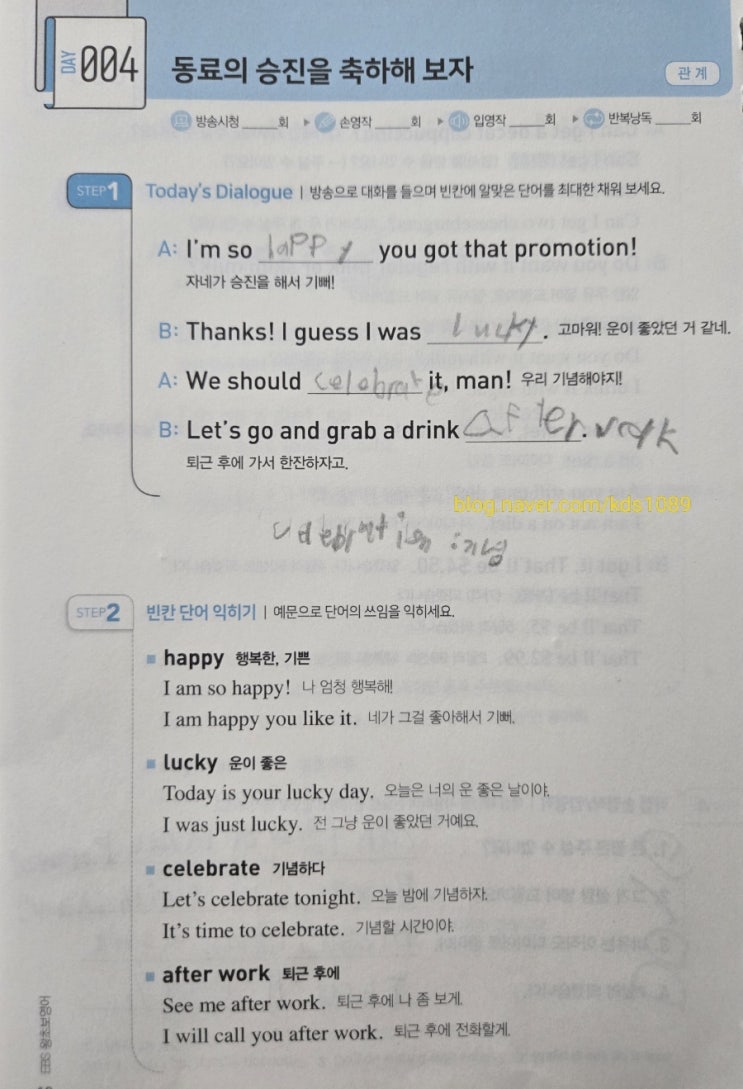 DAY 004 동료의 승진을 축하해 보자 관계
방송시청 _____회 ▶ 손영작 _____회 ▶ 입영작 _____회 ▶ 반복낭독 _____회
STEP 1 Today's Dialogue | 방송으로 대화를 들으며 빈칸에 알맞은 단어를 최대한 채워 보세요.
A: I'm so happy you got that promotion!
자네가 승진을 해서 기뻐!
B: Thanks! I guess I was lucky. 고마워! 운이 좋았던 거 같네.
A: We should celebrate it, man! 우리 기념해야지!
B: Let's go and grab a drink after work.
퇴근 후에 가서 한잔하자고.
blog.naver.com/kds1089
:기념
STEP 2 빈칸 단어 익히기 | 예문으로 단어의 쓰임을 익히세요.
■ happy 행복한, 기쁜
I am so happy! 나 엄청 행복해!
I am happy you like it. 네가 그걸 좋아해서 기뻐.
■ lucky 운이 좋은
Today is your lucky day. 오늘은 너의 운 좋은 날이야.
I was just lucky. 전 그냥 운이 좋았던 거예요.
■ celebrate 기념하다
Let's celebrate tonight. 오늘 밤에 기념하자.
It's time to celebrate. 기념할 시간이야.
■ after work 퇴근 후에
See me after work. 퇴근 후에 나 좀 보게.
I will call you after work. 퇴근 후에 전화할게.
EBS 왕초보영어